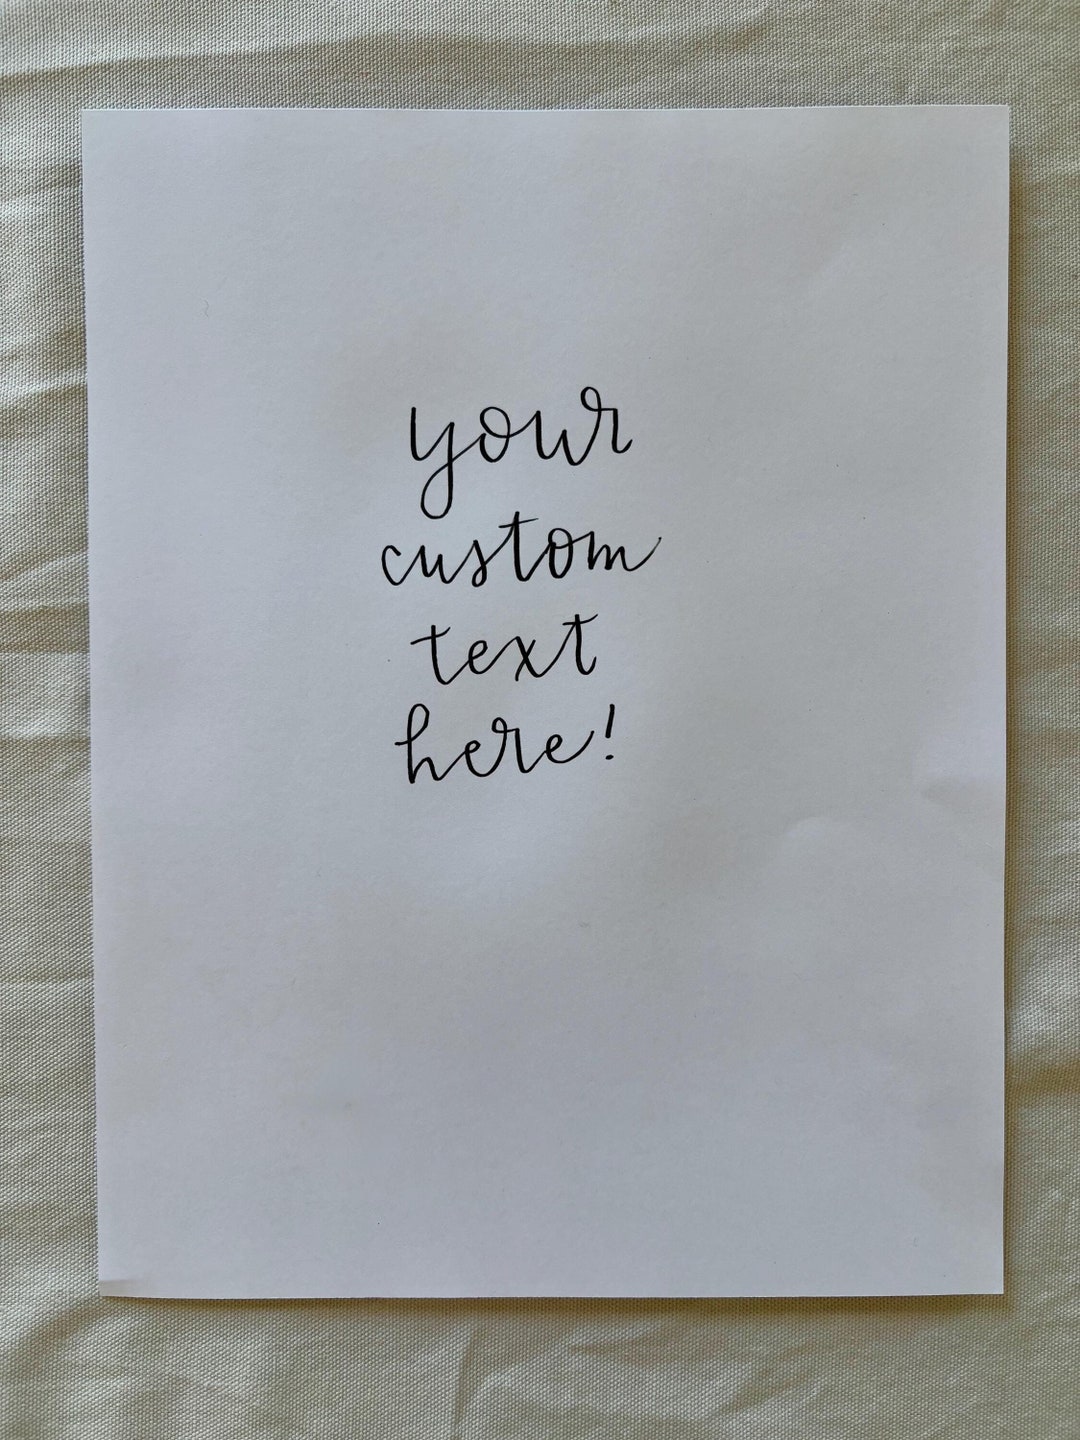 your
custom
text
here!